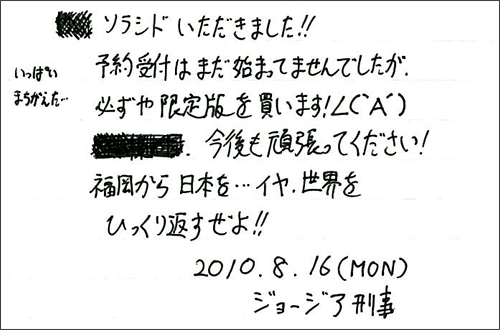 ソラシド いただきました!!
予約受付はまだ始まってませんでしたが、
いっぱい
まちがえた…
必ずや限定版を買います!∠(`A´)
今後も頑張ってください!
福岡から日本を…イヤ、世界を
ひっくり返すぜよ!!
2010.8.16(MON)
ジョージア刑事